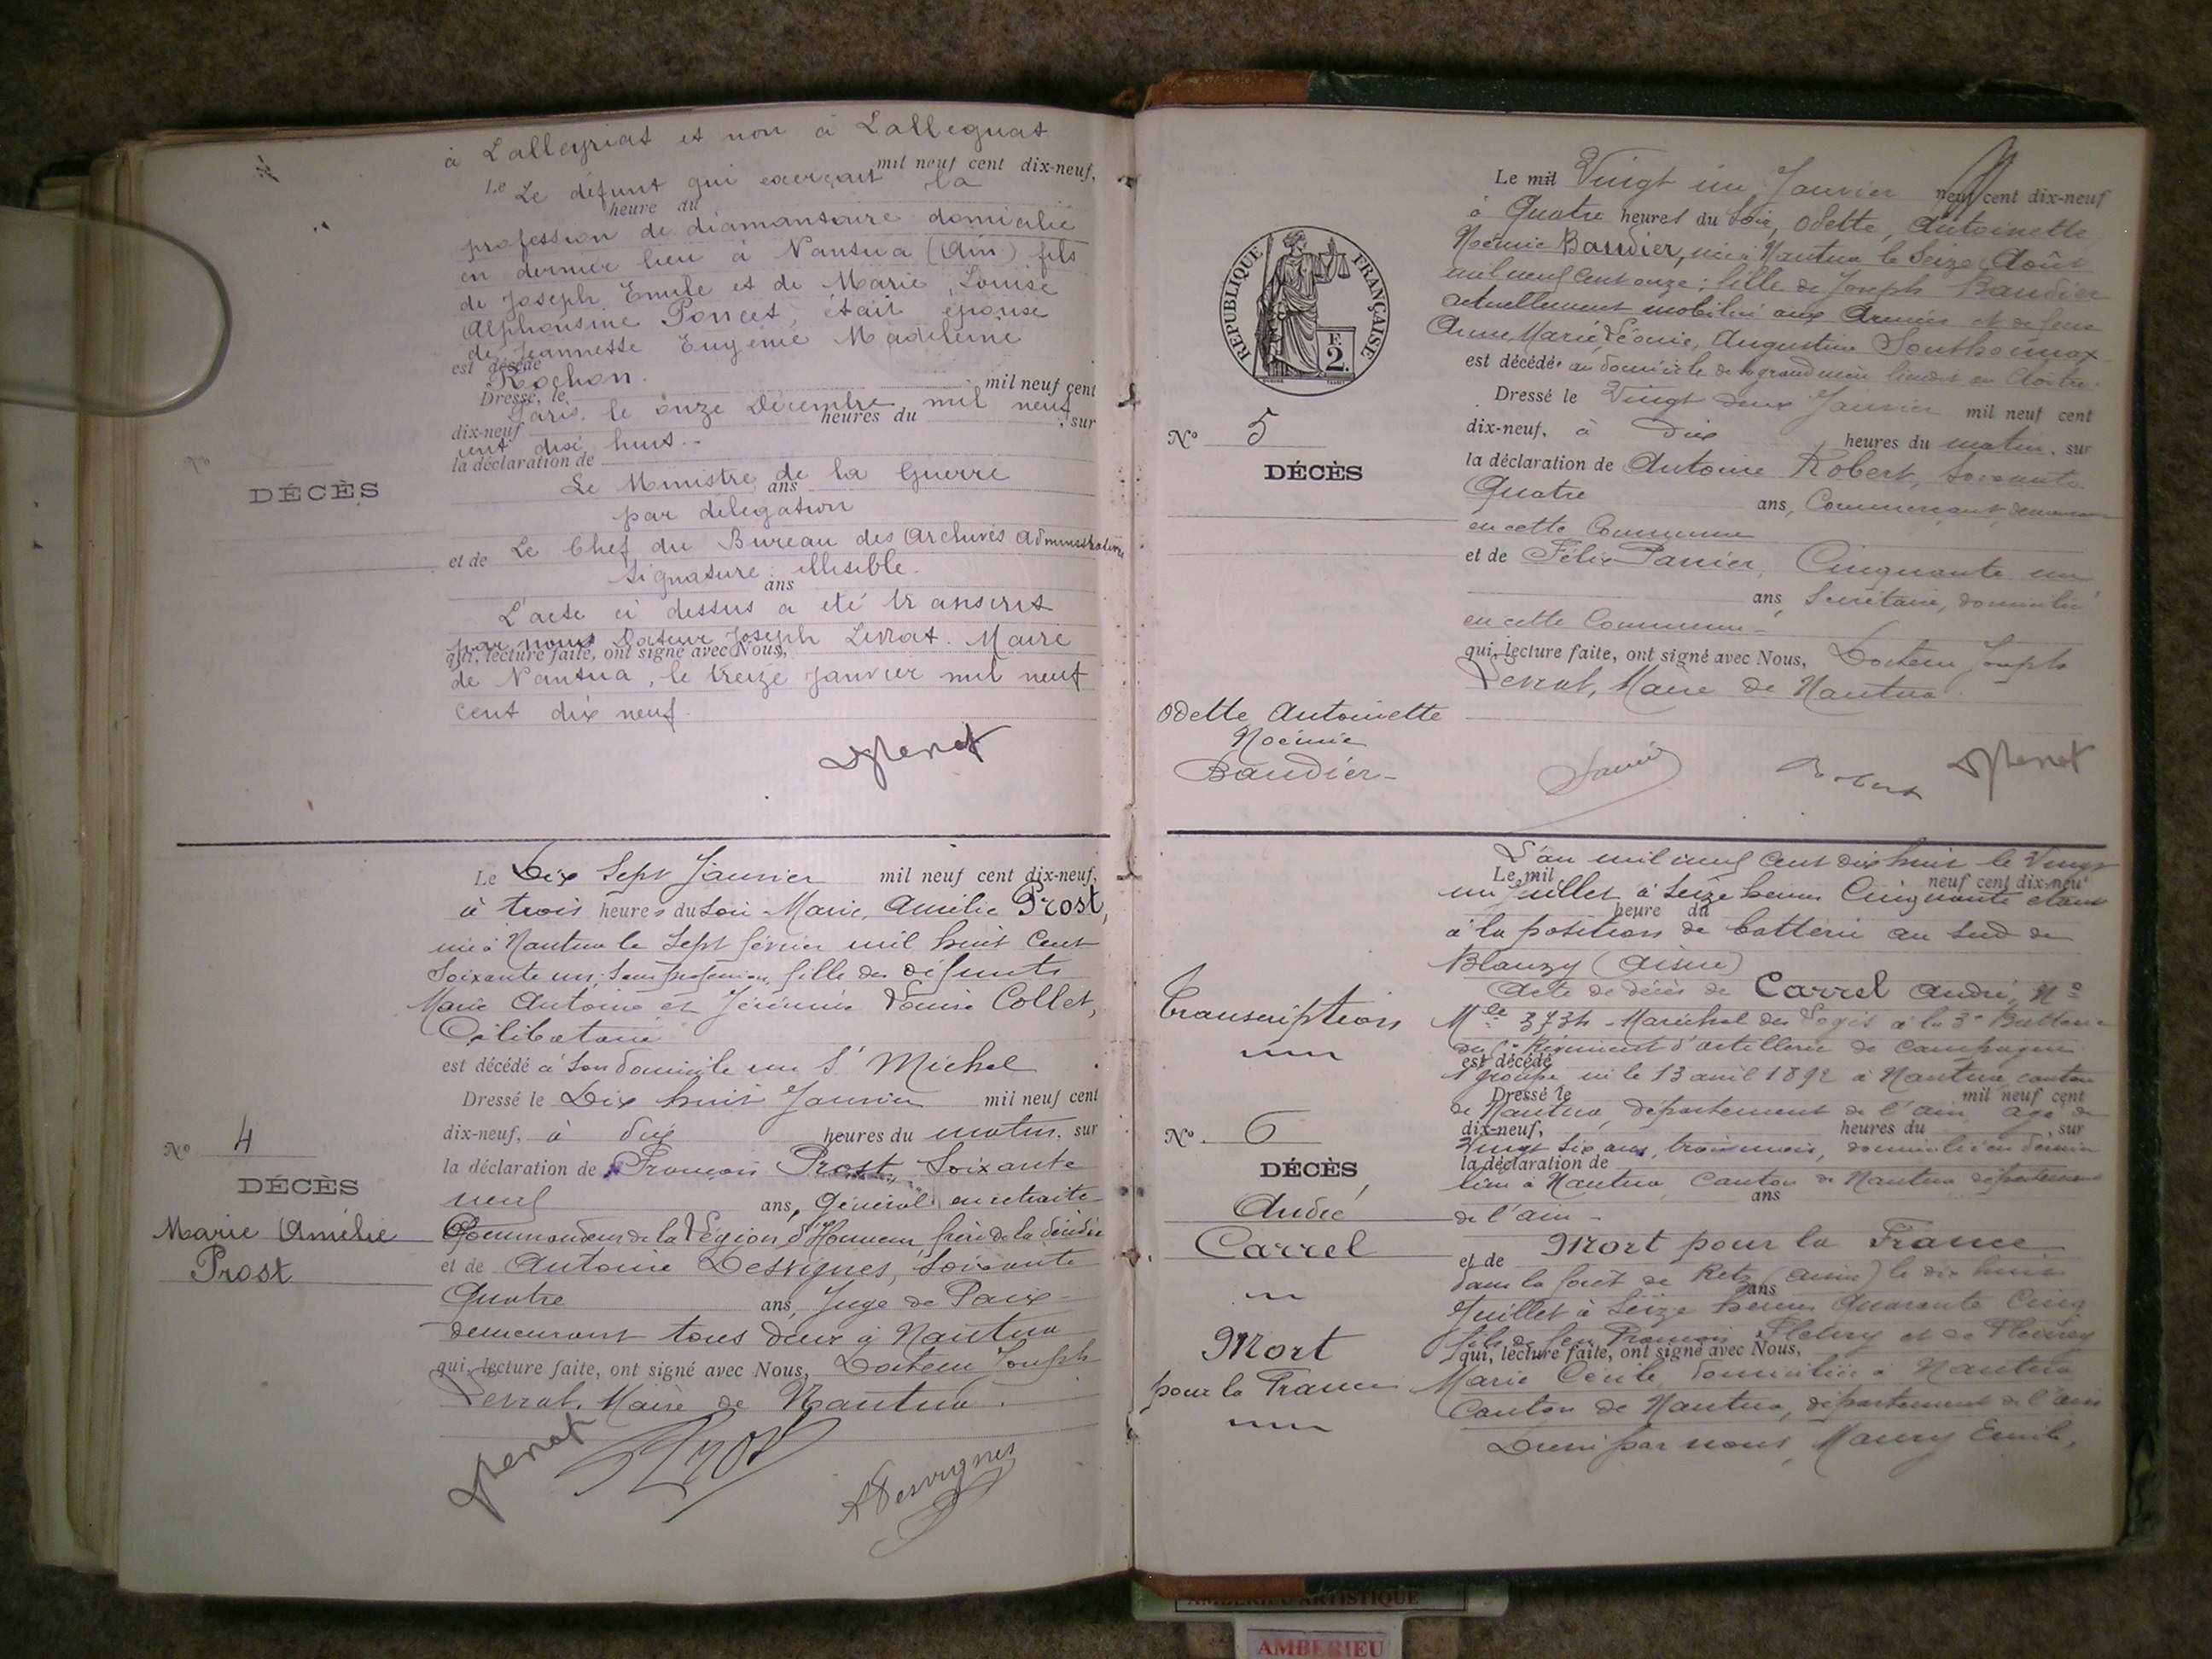 à Lalleyriat et non à Lalleguat
Le mil neuf cent dix-neuf,
Le défunt qui exerçait la
heure du
profession de diamantaire domicilié
en dernier lieu à Nantua (Ain) fils
de Joseph Emile et de Marie Louise
Alphonsine Poncet, était épouse
de Jeannette Eugénie Madeleine
est décédé
Rochon.
Dressé, le mil neuf cent
Paris, le onze Décembre mil neuf
dix-neuf heures du , sur
cent dix huit.-
la déclaration de
Le Ministre de la Guerre
ans
par délégation
DÉCÈS
et de Le Chef du Bureau des Archives Administratives
Signature : illisible.
ans
L'acte ci dessus a été transcrit
par nous Docteur Joseph Levrat. Maire
qui, lecture faite, ont signé avec Nous,
de Nantua, le treize Janvier mil neuf
cent dix neuf.
Le Dix Sept Janvier mil neuf cent dix-neuf,
à trois heures du Soir Marie, Amélie Prost,
née à Nantua le Sept février mil huit Cent
Soixante un, Sans profession, fille des défunts
Marie Antoine et Jérémie Louise Collet,
Célibataire
est décédé à Son domicile rue St Michel
Dressé le Dix huit Janvier mil neuf cent
dix-neuf, à dix heures du matin, sur
la déclaration de François Prost, Soixante
neuf ans, Général en retraite
Commandeur de la Légion d'Honneur frère de la décédée
et de Antoine Desvignes, Soixante
Quatre ans, Juge de Paix
demeurant tous deux à Nantua
qui, lecture faite, ont signé avec Nous, Docteur Joseph
Levrat, Maire de Nantua.
No 4
DÉCÈS
Marie Amélie
Prost
Prost
ADesvignes
RÉPUBLIQUE FRANÇAISE
F.
2.
Le mil Vingt un Janvier neuf cent dix-neuf
à Quatre heures du Soir, Odette, Antoinette
Noémie Baudier, née à Nantua le Seize Août
mil neuf cent onze ; fille de Joseph Baudier
actuellement mobilisé aux Armées et de feue
Anne, Marie, Léonie, Augustine
est décédée au domicile de la grand mère
Dressé le Vingt deux Janvier mil neuf cent
dix-neuf, à Dix heures du matin, sur
la déclaration de Antoine Robert, Soixante
Quatre ans, Commerçant,
en cette Commune
et de Félix Panier, Cinquante un
ans, Secrétaire, domicilié
en cette Commune -
qui, lecture faite, ont signé avec Nous, Docteur Joseph
Levrat, Maire de Nantua
No 5
DÉCÈS
Odette Antoinette
Noémie
Baudier-
Robert
L'an mil neuf Cent dix huit le Vingt
Le mil neuf cent dix-neuf
un Juillet à Seize heures Cinquante
heure du
à la position de batterie au Sud de
Blanzy (Aisne)
Acte de décès de Carrel André, No
Mle 3734 - Maréchal des Logis à la 3e Batterie
du Régiment d'artillerie de Campagne
est décédé
1 groupe né le 13 avril 1892 à Nantua, canton
Dressé le mil neuf cent
de Nantua, département de l'ain âgé de
dix-neuf, heures du , sur
Vingt Six ans, trois mois, domicilié en dernier
la déclaration de
lieu à Nantua Canton de Nantua département
ans
de l'ain -
et de Mort pour la France
dans la forêt de Retz (Aisne) le dix huit
ans
Juillet à Seize heures Quarante Cinq
fils de feu François Fleury et de Fleurey
qui, lecture faite, ont signé avec Nous,
Marie Cécile domiciliée à Nantua
Canton de Nantua, département de l'ain
Dressé par nous, Maury Emile,
Transcription
No 6
DÉCÈS
André
Carrel
Mort
pour la France
AMBERIEU ARTISTIQUE
AMBERIEU